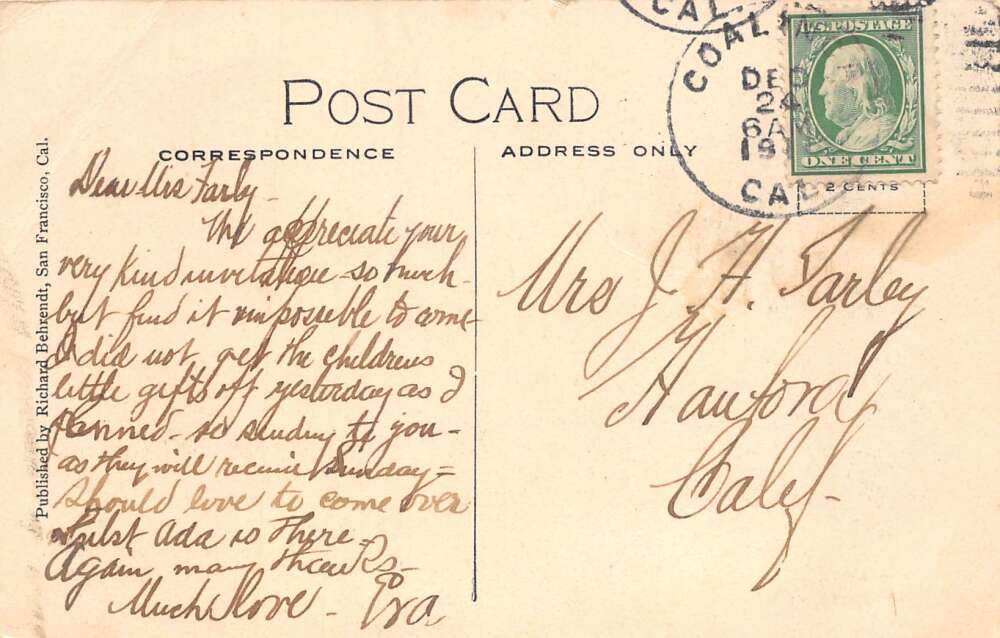 CAL.
COALIN
DEC
24
6 AM
191
CAL
U.S. POSTAGE
ONE CENT
2 CENTS
POST CARD
CORRESPONDENCE
ADDRESS ONLY
Published by Richard Behrendt, San Francisco, Cal.
Dear Mrs Farley -
We appreciate your
very kind invitation so much -
but find it impossible to come
I did not get the childrens
little gifts off yesterday as I
planned - so sending to you -
as they will receive Sunday =
Should love to come over
whilst Ada is there -
Again many thanks -
Much love - Eva
Mrs J. H. Farley
Hanford
Calif -